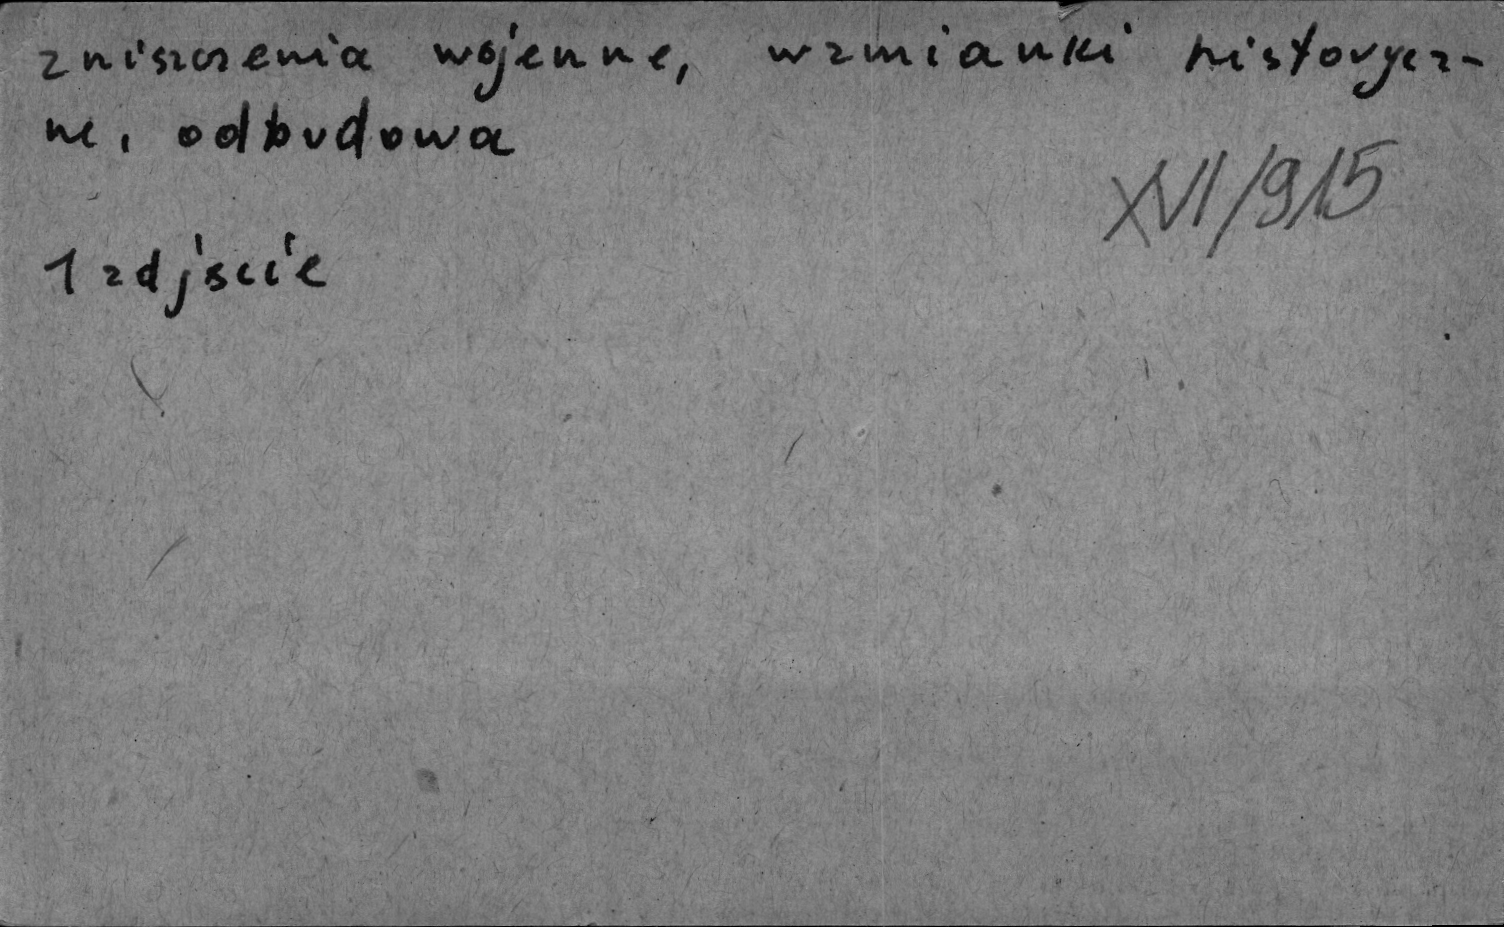 zniszczenia wojenne, wzmianki historycz-
ne, odbudowa
XVI/915
1 zdjście